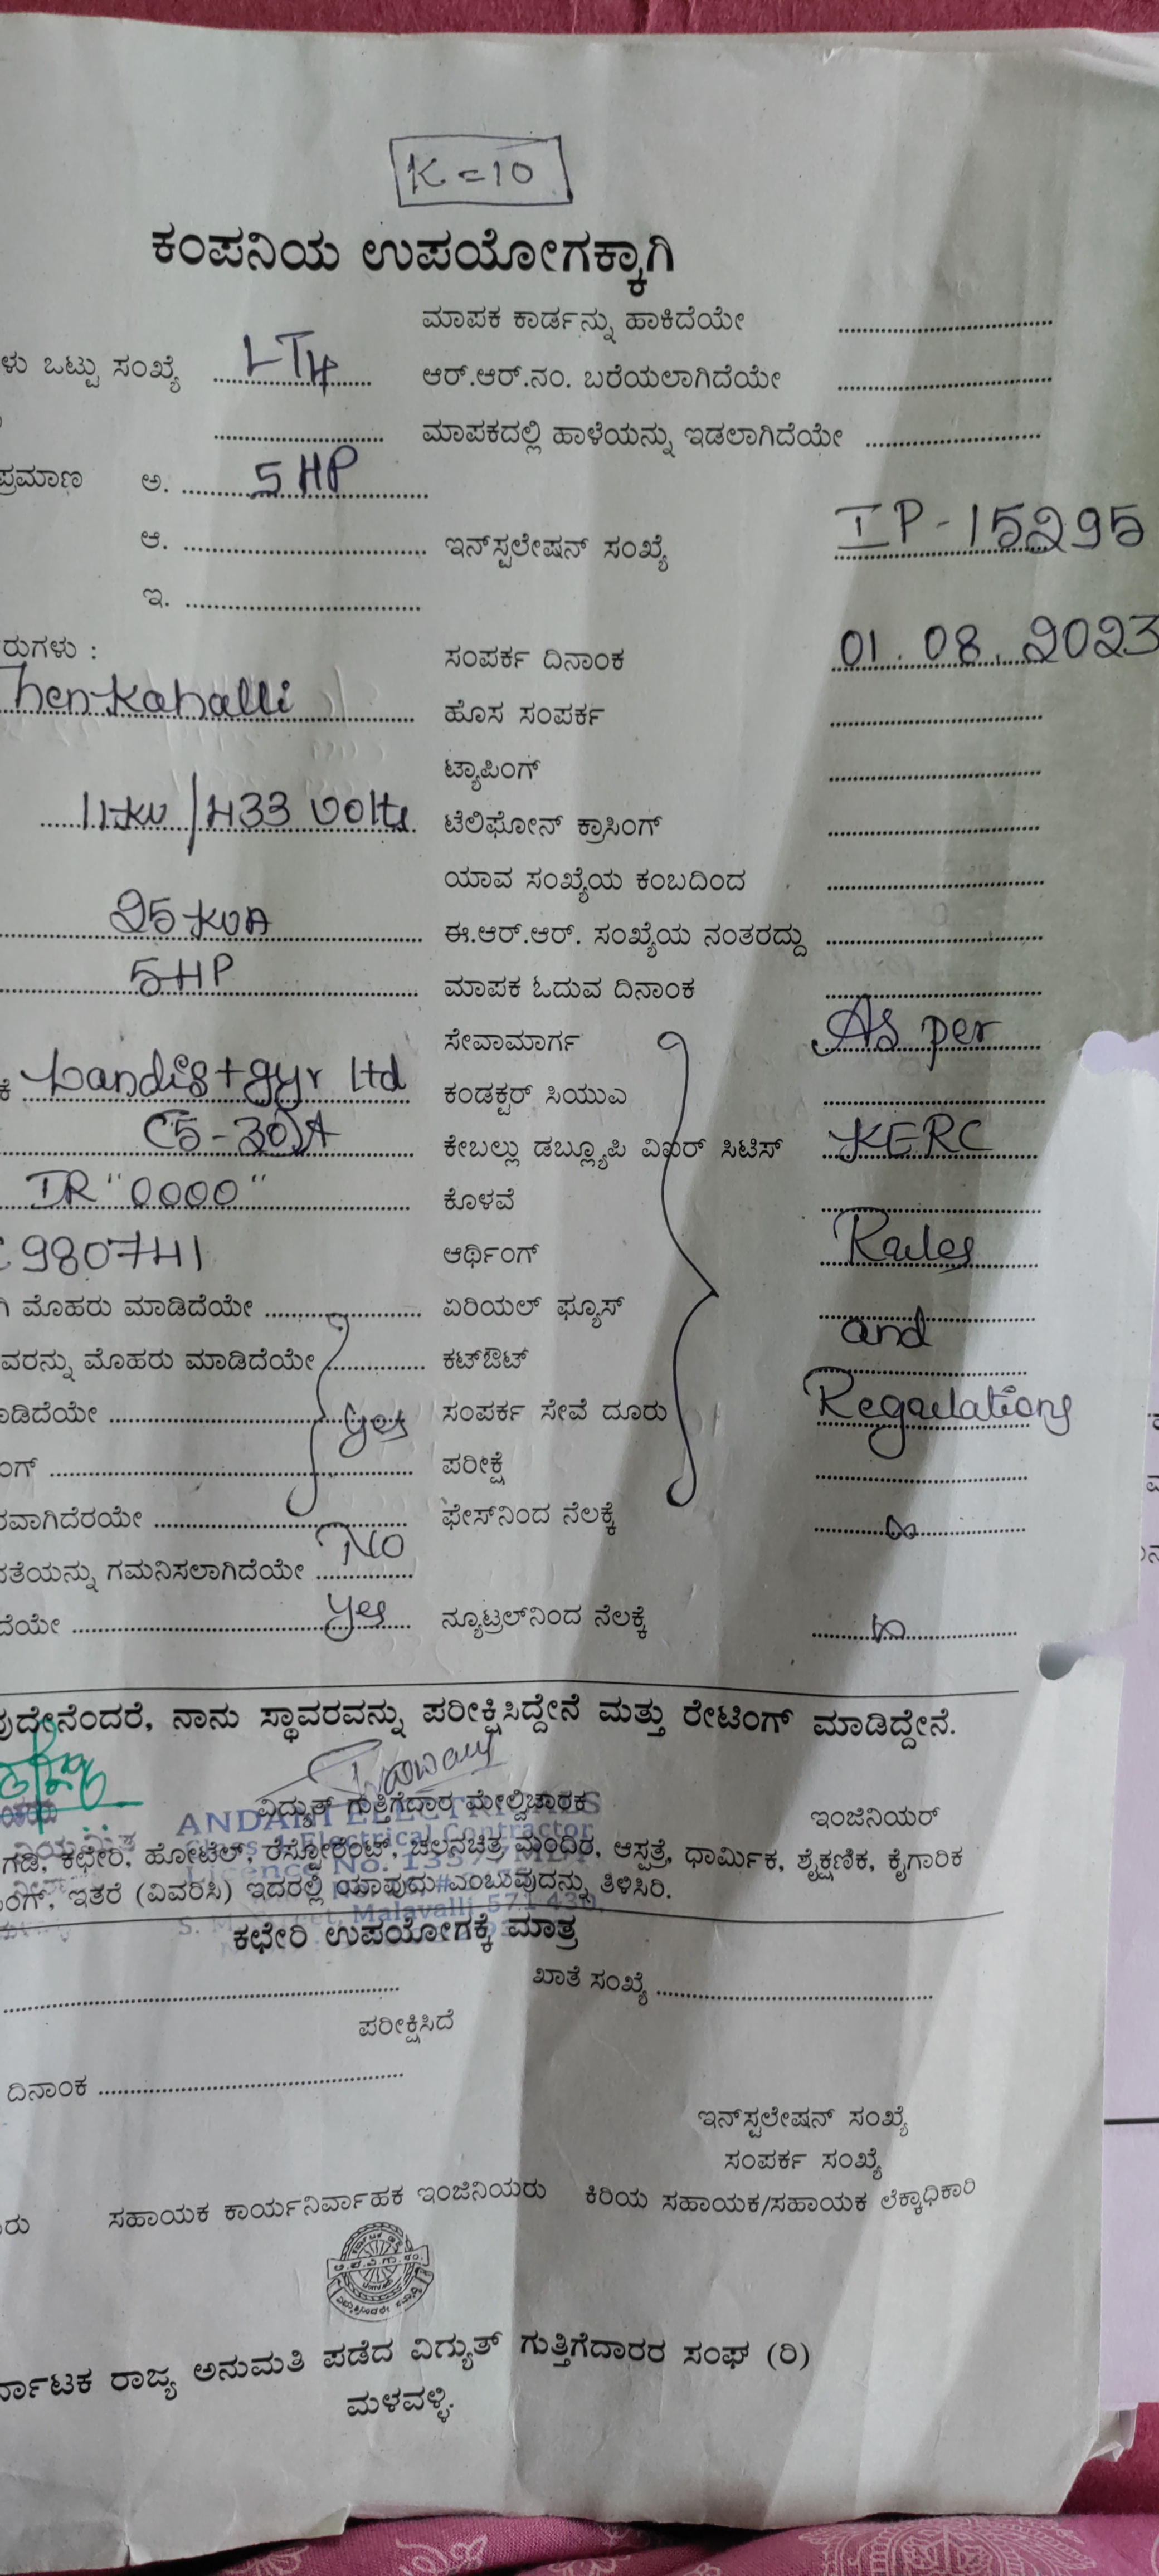 K = 10
ಕಂಪನಿಯ ಉಪಯೋಗಕ್ಕಾಗಿ
ಮಾಪಕ ಕಾರ್ಡನ್ನು ಹಾಕಿದೆಯೇ
ಳು ಒಟ್ಟು ಸಂಖ್ಯೆ LT4 ಆರ್.ಆರ್.ನಂ. ಬರೆಯಲಾಗಿದೆಯೇ
ಮಾಪಕದಲ್ಲಿ ಹಾಳೆಯನ್ನು ಇಡಲಾಗಿದೆಯೇ
ಪ್ರಮಾಣ ಅ. 5 HP
ಆ. ಇನ್‌ಸ್ಟಲೇಷನ್ ಸಂಖ್ಯೆ IP-15295
ಇ.
ರುಗಳು : ಸಂಪರ್ಕ ದಿನಾಂಕ 01.08.2023
henkahalli ಹೊಸ ಸಂಪರ್ಕ
ಟ್ಯಾಪಿಂಗ್
11kv/433 Volts ಟೆಲಿಫೋನ್ ಕ್ರಾಸಿಂಗ್
ಯಾವ ಸಂಖ್ಯೆಯ ಕಂಬದಿಂದ
25 KVA ಈ.ಆರ್.ಆರ್. ಸಂಖ್ಯೆಯ ನಂತರದ್ದು
5HP ಮಾಪಕ ಓದುವ ದಿನಾಂಕ
ಸೇವಾಮಾರ್ಗ As per
ಕೆ Landis+gyr Ltd ಕಂಡಕ್ಟರ್ ಸಿಯುಎ
(5-30)A ಕೇಬಲ್ಲು ಡಬ್ಲ್ಯೂಪಿ ವಿಐರ್ ಸಿಟಿಸ್ KERC
IR "0000" ಕೊಳವೆ
980741 ಆರ್ಥಿಂಗ್ Rules
ಿ ಮೊಹರು ಮಾಡಿದೆಯೇ ಏರಿಯಲ್ ಫ್ಯೂಸ್ and
ವರನ್ನು ಮೊಹರು ಮಾಡಿದೆಯೇ ಕಟ್‌ಔಟ್
ಾಡಿದೆಯೇ yes ಸಂಪರ್ಕ ಸೇವೆ ದೂರು Regulations
ಂಗ್ ಪರೀಕ್ಷೆ
ರವಾಗಿದೆರಯೇ ಫೇಸ್‌ನಿಂದ ನೆಲಕ್ಕೆ
ತೆಯನ್ನು ಗಮನಿಸಲಾಗಿದೆಯೇ No
ದೆಯೇ yes ನ್ಯೂಟ್ರಲ್‌ನಿಂದ ನೆಲಕ್ಕೆ
ುದೇನೆಂದರೆ, ನಾನು ಸ್ಥಾವರವನ್ನು ಪರೀಕ್ಷಿಸಿದ್ದೇನೆ ಮತ್ತು ರೇಟಿಂಗ್ ಮಾಡಿದ್ದೇನೆ.
ವಿದ್ಯುತ್ ಗುತ್ತಿಗೆದಾರ ಮೇಲ್ವಿಚಾರಕ ಇಂಜಿನಿಯರ್
Electrical Contractor
ಗಡಿ, ಕಛೇರಿ, ಹೋಟೆಲ್, ರೆಸ್ಟೋರೆಂಟ್, ಚಲನಚಿತ್ರ ಮಂದಿರ, ಆಸ್ಪತ್ರೆ, ಧಾರ್ಮಿಕ, ಶೈಕ್ಷಣಿಕ, ಕೈಗಾರಿಕ
Licence No.
ಂಗ್, ಇತರೆ (ವಿವರಿಸಿ) ಇದರಲ್ಲಿ ಯಾವುದು ಎಂಬುವುದನ್ನು ತಿಳಿಸಿರಿ.
Malavalli 571 430
ಕಛೇರಿ ಉಪಯೋಗಕ್ಕೆ ಮಾತ್ರ
ಖಾತೆ ಸಂಖ್ಯೆ
ಪರೀಕ್ಷಿಸಿದೆ
ದಿನಾಂಕ
ಇನ್‌ಸ್ಟಲೇಷನ್ ಸಂಖ್ಯೆ
ಸಂಪರ್ಕ ಸಂಖ್ಯೆ
ರು ಸಹಾಯಕ ಕಾರ್ಯನಿರ್ವಾಹಕ ಇಂಜಿನಿಯರು ಕಿರಿಯ ಸಹಾಯಕ/ಸಹಾಯಕ ಲೆಕ್ಕಾಧಿಕಾರಿ
ರ್ನಾಟಕ ರಾಜ್ಯ ಅನುಮತಿ ಪಡೆದ ವಿದ್ಯುತ್ ಗುತ್ತಿಗೆದಾರರ ಸಂಘ (ರಿ)
ಮಳವಳ್ಳಿ.